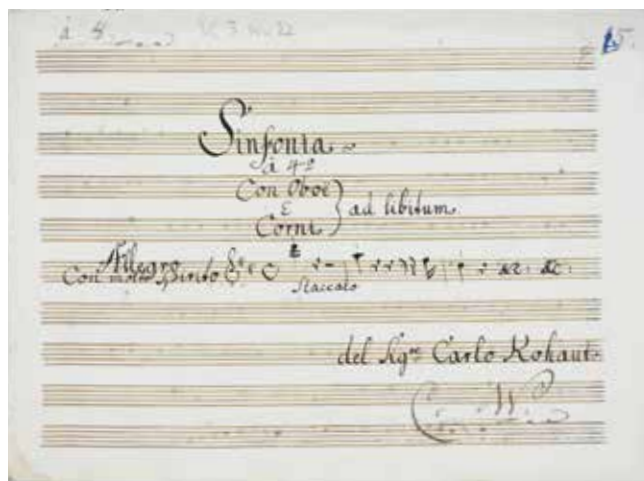 à 4
15.
Sinfonia
à 4º
Con Oboe
E
Corni
ad libitum
Allegro
Con molto Spirito
Staccato
&c: &c:
del Sigre Carlo Kohaut